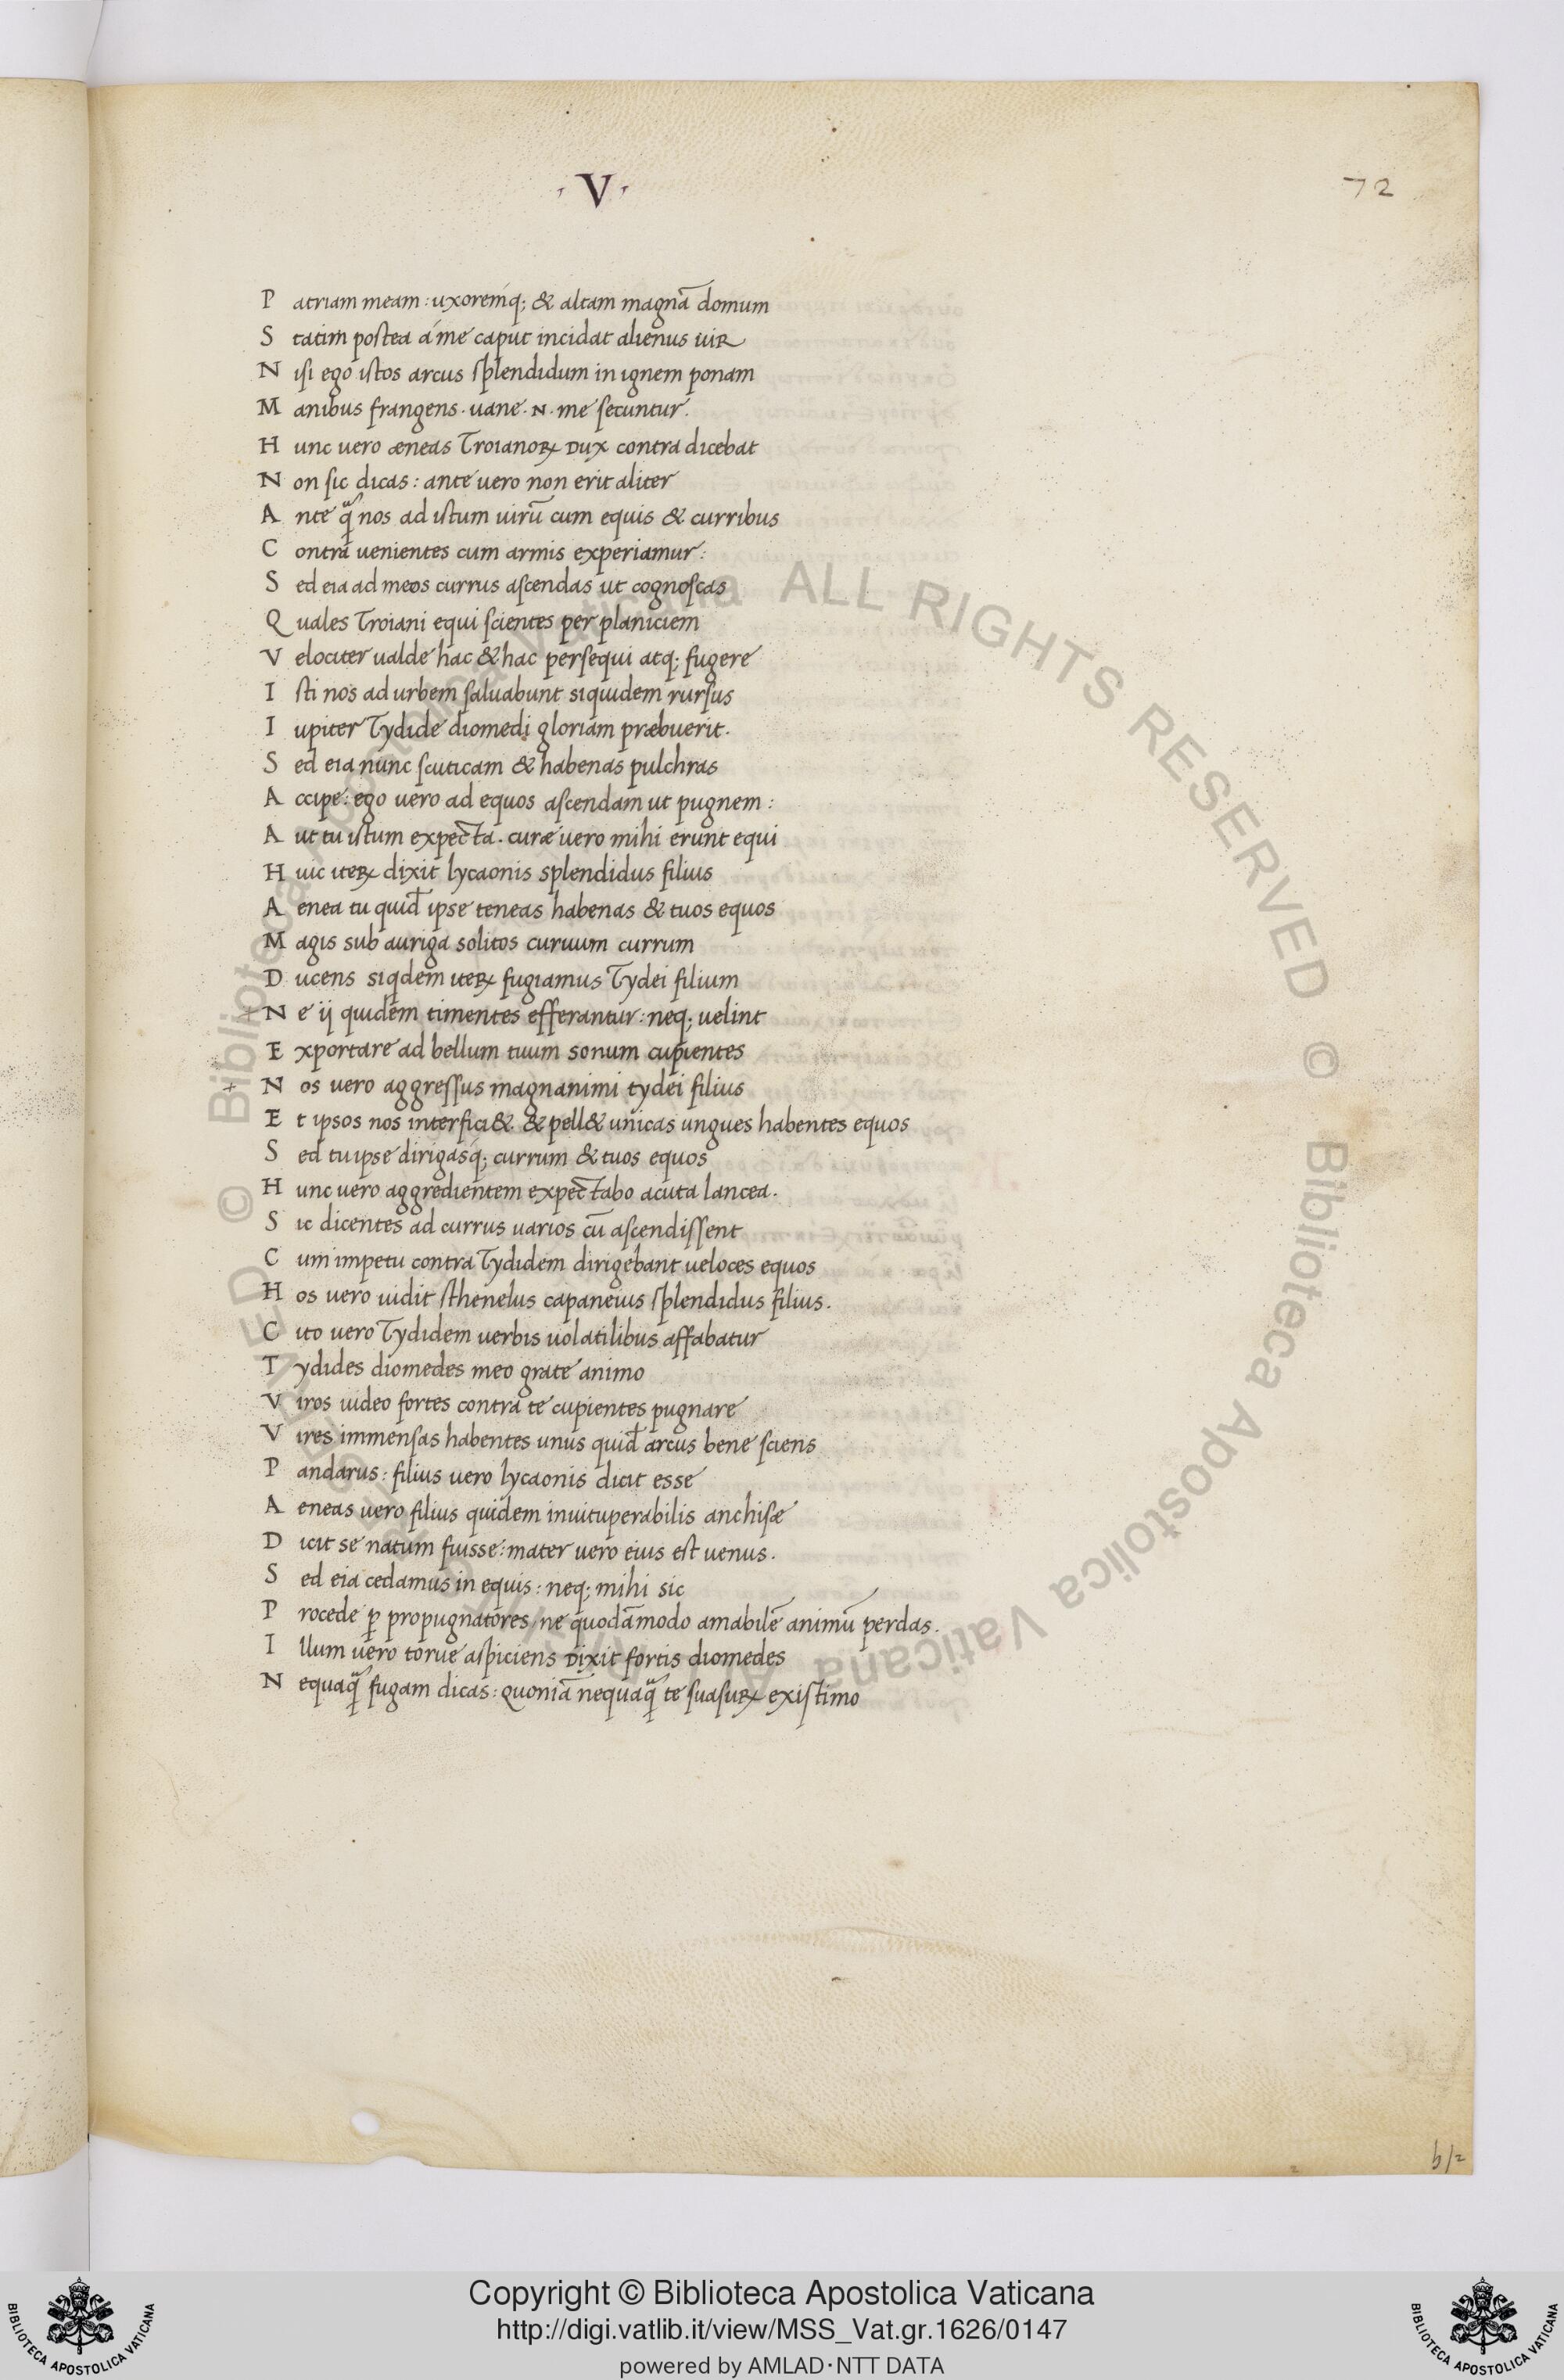 · V ·
72
P atriam meam : uxoremq; & altam magnā domum
S tatim postea á me caput incidat alienus uiR
N isi ego istos arcus splendidum in ignem ponam
M anibus frangens · uane · N · me secuntur.
H unc uero æneas TroianoꝜ Dux contra dicebat
N on sic dicas : ante uero non erit aliter
A nte q̄ nos ad istum uirū cum equis & curribus
C ontra uenientes cum armis experiamur :
S ed eia ad meos currus ascendas ut cognoscas
Q uales Troiani equi scientes per planiciem
V elociter ualde hac & hac persequi atq; fugere
I sti nos ad urbem saluabunt siquidem rursus
I upiter Tydide diomedi gloriam præbuerit.
S ed eia nunc scuticam & habenas pulchras
A ccipe : ego uero ad equos ascendam ut pugnem :
A ut tu istum expecta . curæ uero mihi erunt equi
H uic iteꝜ dixit lycaonis splendidus filius
A enea tu quid̄ ipse teneas habenas & tuos equos
M agis sub auriga solitos curuum currum
D ucens siqdem iteꝜ fugiamus Tydei filium
N e ij quidem timentes efferantur : neq; uelint
E xportare ad bellum tuum sonum cupientes
N os uero aggressus magnanimi tydei filius
E t ipsos nos interfici& & pell& unicas ungues habentes equos
S ed tu ipse dirigasq́; currum & tuos equos
H unc uero aggredientem expectabo acuta lancea.
S ic dicentes ad currus uarios cū ascendissent
C um impetu contra Tydidem dirigebant ueloces equos
H os uero uidit sthenelus capaneius splendidus filius.
C ito uero Tydidem uerbis uolatilibus affabatur
T ydides diomedes meo grate animo
V iros uideo fortes contra te cupientes pugnare
V ires immensas habentes unus quid̄ arcus bene sciens
P andarus : filius uero lycaonis dicit esse
A eneas uero filius quidem inuituperabilis anchisæ
D icit se natum fuisse : mater uero eius est uenus.
S ed eia cedamus in equis : neq; mihi sic
P rocede ꝑ propugnatores / ne quodāmodo amabilē animū perdas.
I llum uero torue aspiciens Dixit fortis diomedes
N equaq̄ fugam dicas : quoniā nequaq̄ te suasuꝜ existimo
b/2
Copyright © Biblioteca Apostolica Vaticana
http://digi.vatlib.it/view/MSS_Vat.gr.1626/0147
powered by AMLAD·NTT DATA
BIBLIOTECA APOSTOLICA VATICANA
BIBLIOTECA APOSTOLICA VATICANA